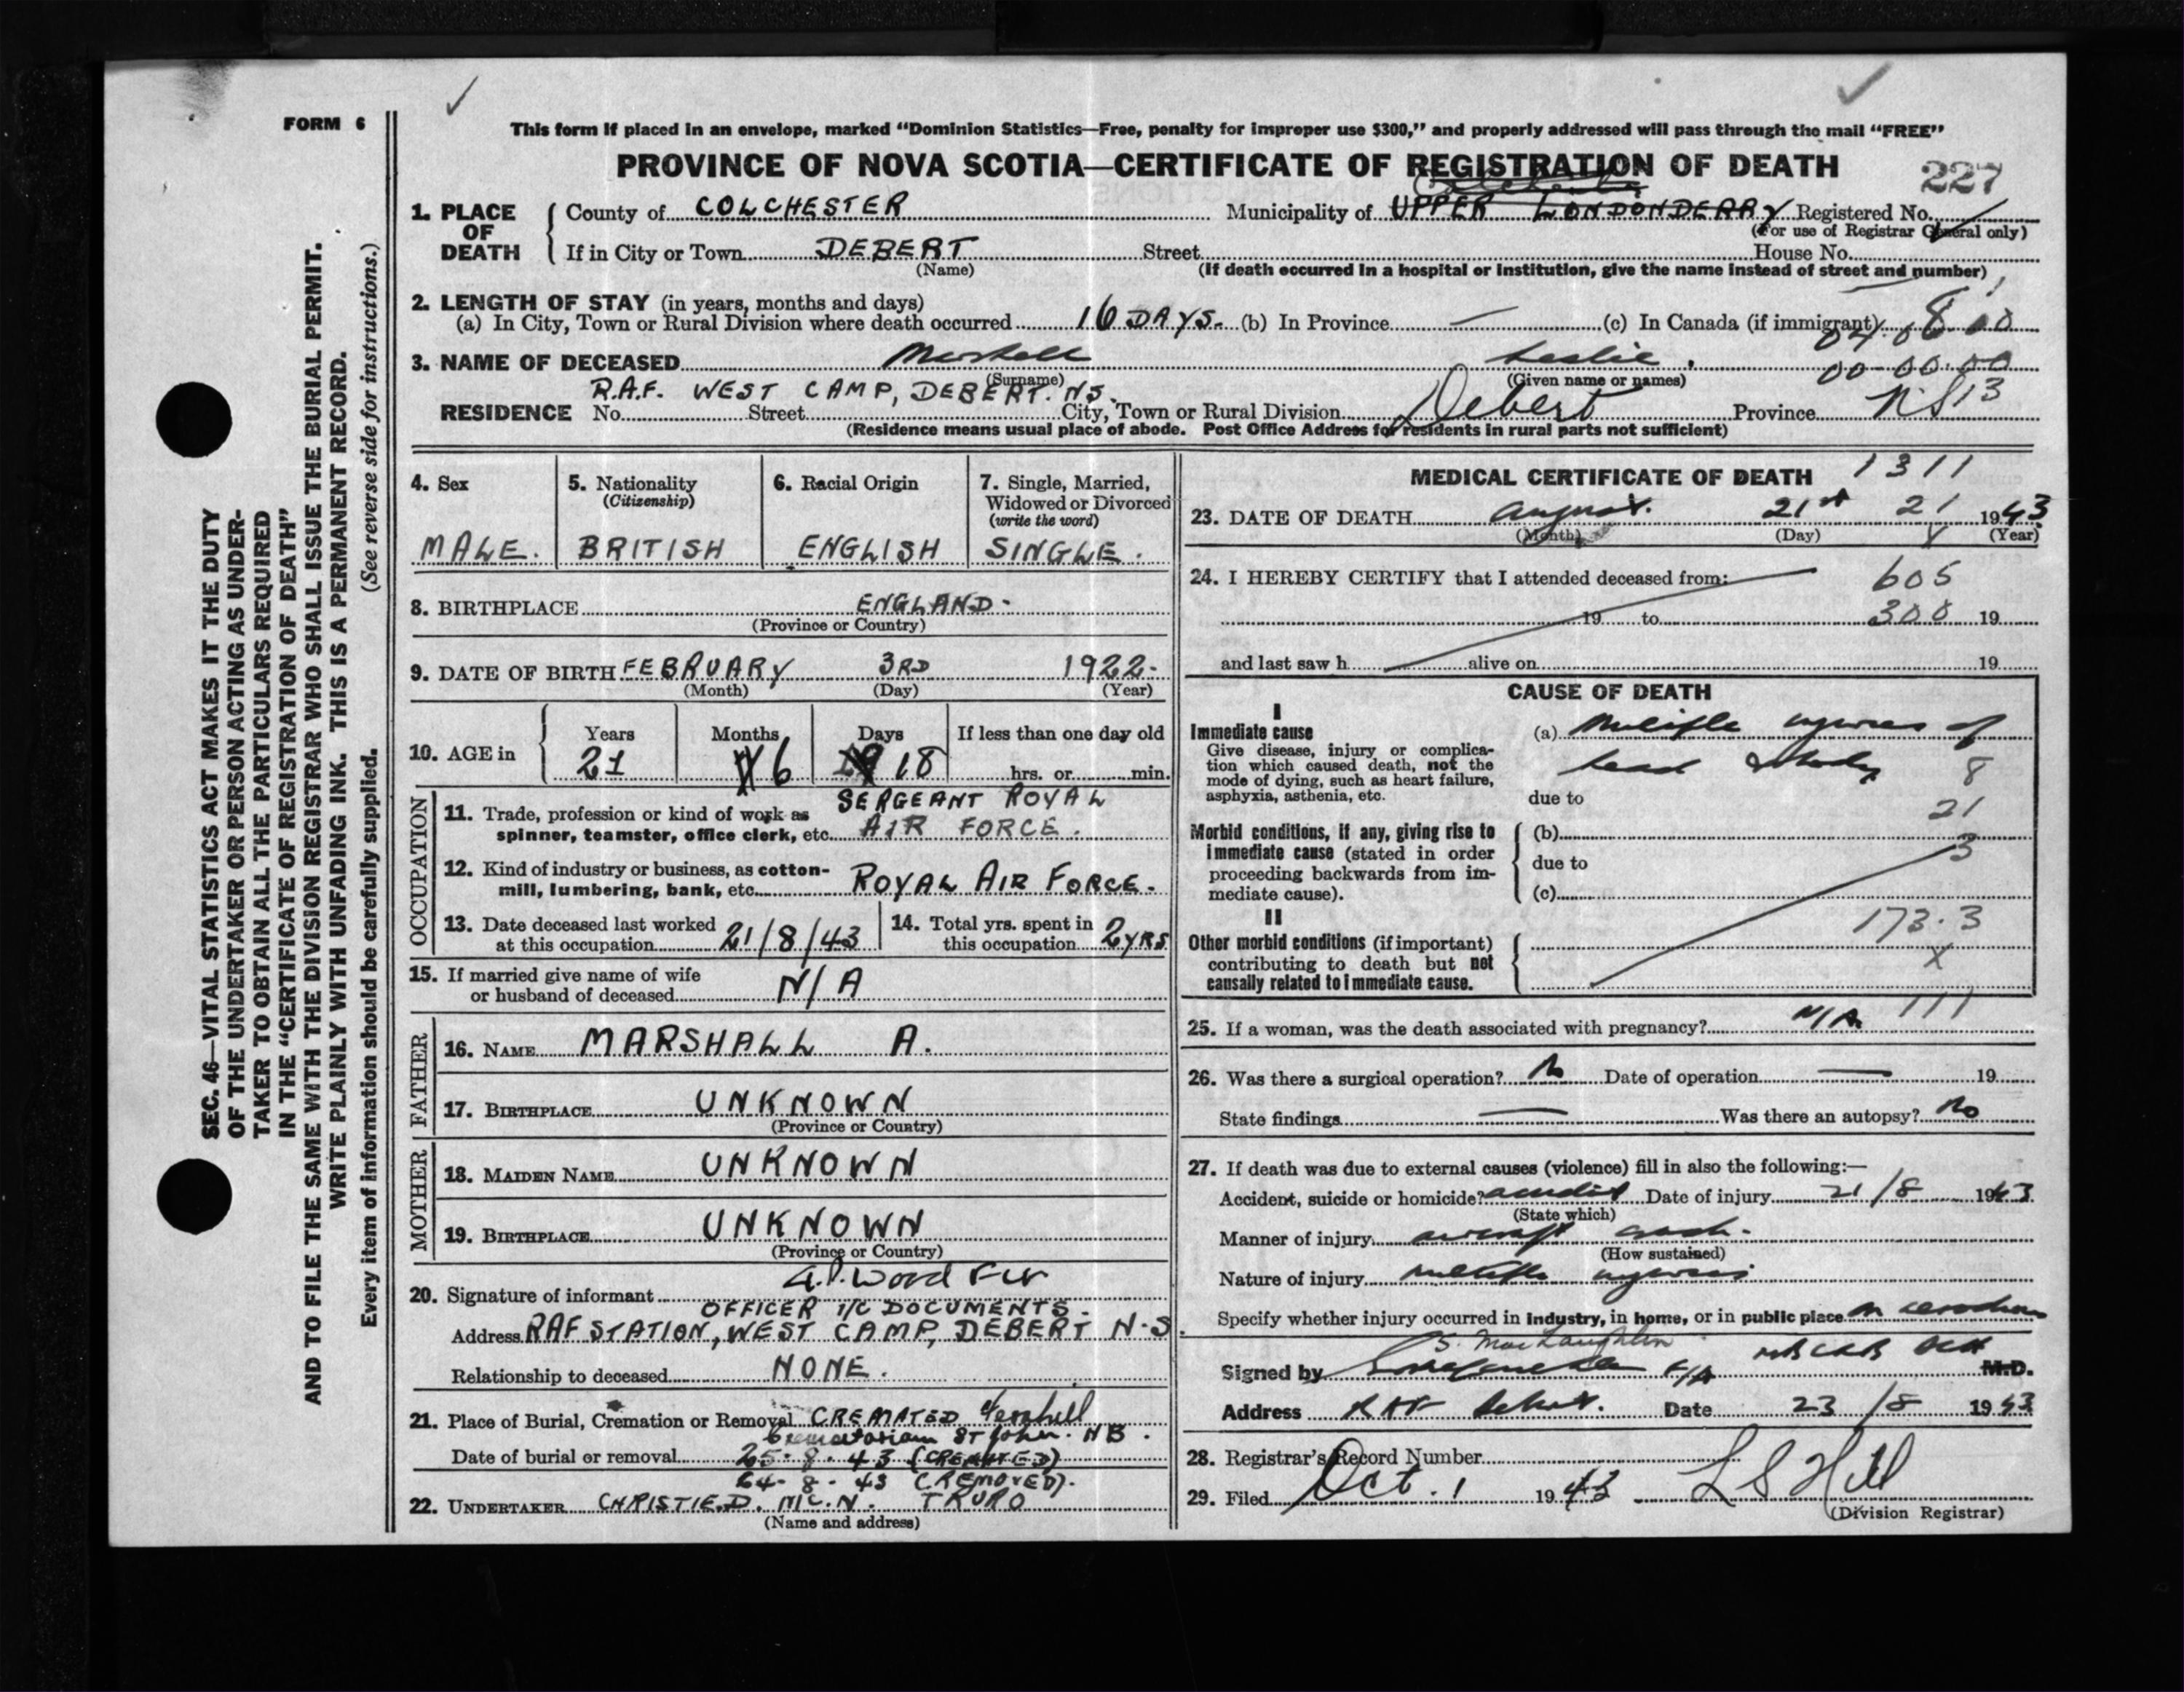 FORM 6
This form if placed in an envelope, marked "Dominion Statistics—Free, penalty for improper use $300," and properly addressed will pass through the mail "FREE"
PROVINCE OF NOVA SCOTIA—CERTIFICATE OF REGISTRATION OF DEATH
227
1. PLACE OF DEATH
County of COLCHESTER Municipality of UPPER LONDONDERRY Registered No.
(For use of Registrar General only)
If in City or Town DEBERT Street House No.
(Name) (If death occurred in a hospital or institution, give the name instead of street and number)
2. LENGTH OF STAY (in years, months and days)
(a) In City, Town or Rural Division where death occurred 16 DAYS. (b) In Province — (c) In Canada (if immigrant)
3. NAME OF DECEASED Marshall Leslie.
(Surname) (Given name or names) 00-00-00
R.A.F. WEST CAMP, DEBERT. N.S.
RESIDENCE No. Street City, Town or Rural Division Debert Province N.S 13
(Residence means usual place of abode. Post Office Address for residents in rural parts not sufficient)
4. Sex
MALE.
5. Nationality
(Citizenship)
BRITISH
6. Racial Origin
ENGLISH
7. Single, Married,
Widowed or Divorced
(write the word)
SINGLE.
8. BIRTHPLACE ENGLAND-
(Province or Country)
9. DATE OF BIRTH FEBRUARY 3RD 1922-
(Month) (Day) (Year)
10. AGE in
Years Months Days If less than one day old
21 6 18 hrs. or min.
OCCUPATION
11. Trade, profession or kind of work as SERGEANT ROYAL
spinner, teamster, office clerk, etc. AIR FORCE.
12. Kind of industry or business, as cotton-
mill, lumbering, bank, etc. ROYAL AIR FORCE.
13. Date deceased last worked
at this occupation 21/8/43
14. Total yrs. spent in
this occupation 2 YRS
15. If married give name of wife
or husband of deceased N/A
FATHER
16. NAME MARSHALL A.
17. BIRTHPLACE UNKNOWN
(Province or Country)
MOTHER
18. MAIDEN NAME UNKNOWN
19. BIRTHPLACE UNKNOWN
(Province or Country)
20. Signature of informant Wood
OFFICER I/C DOCUMENTS.
Address RAF STATION, WEST CAMP, DEBERT N.S.
Relationship to deceased NONE.
21. Place of Burial, Cremation or Removal CREMATED Fernhill
Crematorium St John. N B.
Date of burial or removal 25-8-43 (CREMATED)
24-8-43 (REMOVED).
22. UNDERTAKER CHRISTIE.D. MC.N. TRURO
(Name and address)
MEDICAL CERTIFICATE OF DEATH 1311
23. DATE OF DEATH August. 21st 21 1943
(Month) (Day) (Year)
24. I HEREBY CERTIFY that I attended deceased from: 605
19 to 300 19
and last saw h alive on 19
CAUSE OF DEATH
I
Immediate cause
Give disease, injury or complica-
tion which caused death, not the
mode of dying, such as heart failure,
asphyxia, asthenia, etc.
(a) Multiple injuries of
head & body 8
due to
21
Morbid conditions, if any, giving rise to
immediate cause (stated in order
proceeding backwards from im-
mediate cause).
(b)
3
due to
(c)
II
Other morbid conditions (if important)
contributing to death but not
causally related to immediate cause.
173.3
X
111
25. If a woman, was the death associated with pregnancy? N/A.
26. Was there a surgical operation? No Date of operation — 19
State findings — Was there an autopsy? No
27. If death was due to external causes (violence) fill in also the following:—
Accident, suicide or homicide? accident Date of injury 21/8 1943
(State which)
Manner of injury aircraft crash.
(How sustained)
Nature of injury multiple injuries
Specify whether injury occurred in industry, in home, or in public place on aerodrome
S. MacLaughlin
Signed by M.D.
Address RAF Debert. Date 23/8 1943
28. Registrar's Record Number
29. Filed Oct. 1 1943 L S Hill
(Division Registrar)
SEC. 46—VITAL STATISTICS ACT MAKES IT THE DUTY
OF THE UNDERTAKER OR PERSON ACTING AS UNDER-
TAKER TO OBTAIN ALL THE PARTICULARS REQUIRED
IN THE "CERTIFICATE OF REGISTRATION OF DEATH"
AND TO FILE THE SAME WITH THE DIVISION REGISTRAR WHO SHALL ISSUE THE BURIAL PERMIT.
WRITE PLAINLY WITH UNFADING INK. THIS IS A PERMANENT RECORD.
Every item of information should be carefully supplied. (See reverse side for instructions.)